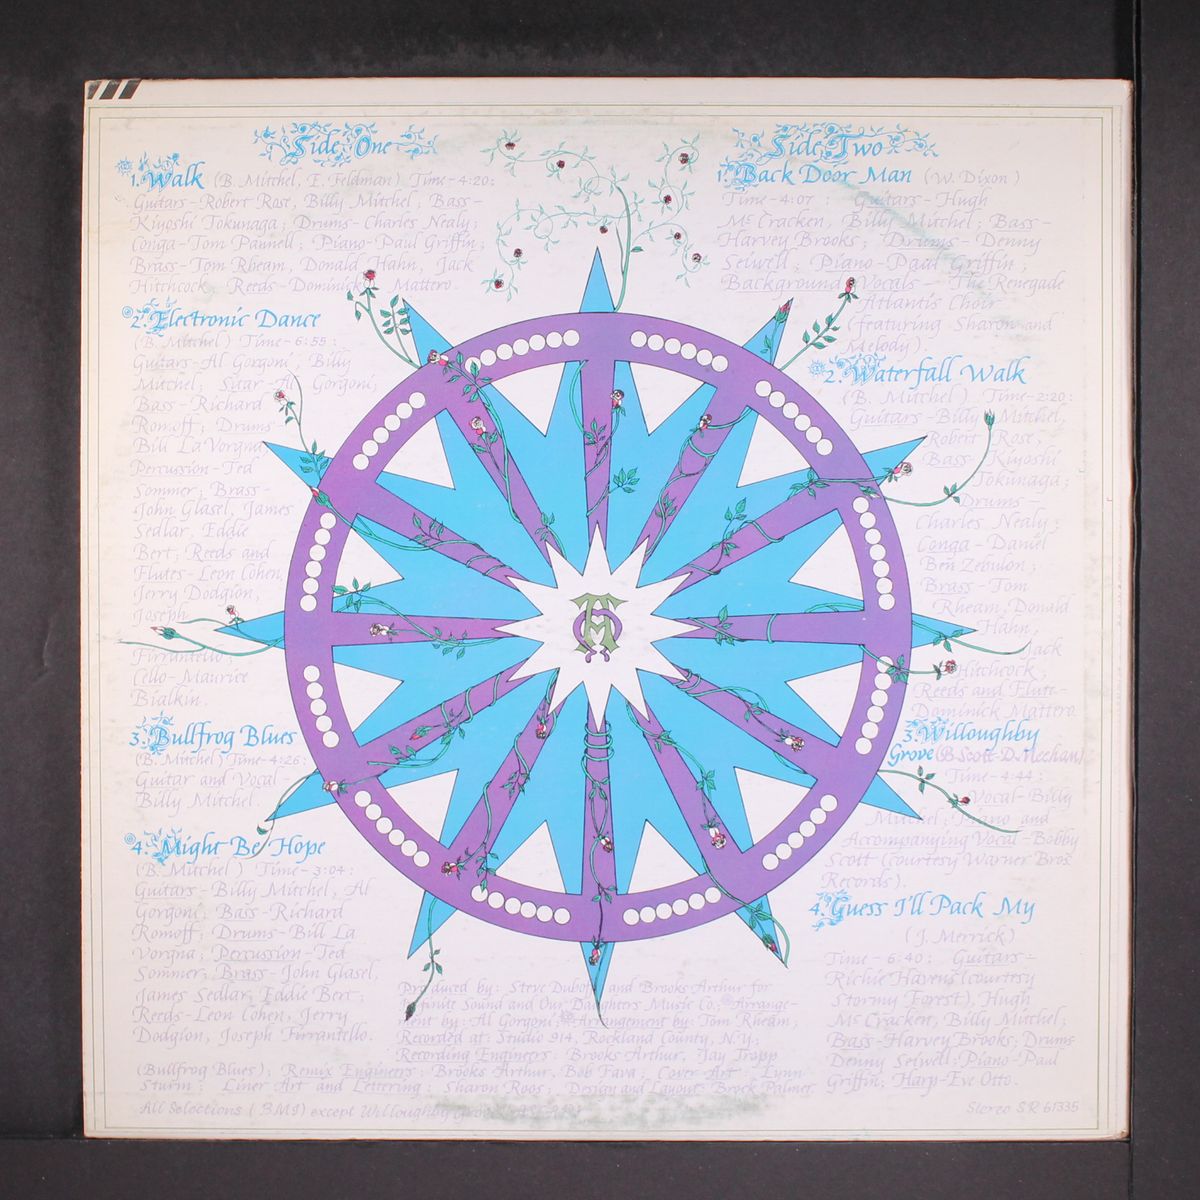 Side One
1. Walk (B. Mitchel, E. Feldman) Time-4:20:
Guitars-Robert Rose, Billy Mitchel; Bass-
Kiyoshi Tokunaga; Drums-Charles Nealy;
Conga-Tom Pannell; Piano-Paul Griffin;
Brass-Tom Rheam, Donald Hahn, Jack
Hitchcock; Reeds-Dominick Mattero.
2. Electronic Dance
(B. Mitchel) Time-6:55:
Guitars-Al Gorgoni, Billy
Mitchel; Sitar-Al Gorgoni;
Bass-Richard
Romoff; Drums-
Bill La Vorgna;
Percussion-Ted
Sommer; Brass-
John Glasel, James
Sedlar, Eddie
Bert; Reeds and
Flutes-Leon Cohen,
Jerry Dodgion,
Joseph
Firrantello;
Cello-Maurice
Bialkin.
3. Bullfrog Blues
(B. Mitchel) Time-4:26:
Guitar and Vocal
Billy Mitchel.
4. Might Be Hope
(B. Mitchel) Time-3:04:
Guitars-Billy Mitchel, Al
Gorgoni; Bass-Richard
Romoff; Drums-Bill La
Vorgna; Percussion-Ted
Sommer; Brass-John Glasel,
James Sedlar, Eddie Bert;
Reeds-Leon Cohen, Jerry
Dodgion, Joseph Firrantello.
Side Two
1. Back Door Man (W. Dixon)
Time-4:07: Guitars-Hugh
McCracken, Billy Mitchel; Bass-
Harvey Brooks; Drums-Denny
Seiwell; Piano-Paul Griffin;
Background Vocals-The Renegade
Atlantis Choir
(featuring Sharon and
Melody).
2. Waterfall Walk
(B. Mitchel) Time-2:20:
Guitars-Billy Mitchel,
Robert Rose;
Bass-Kiyoshi
Tokunaga;
Drums
Charles Nealy;
Conga-Daniel
Ben Zebulon;
Brass-Tom
Rheam, Donald
Hahn,
Jack
Hitchcock;
Reeds and Flute-
Dominick Mattero.
3. Willoughby
Grove (B. Scott-D. Meehan)
Time-4:44:
Vocal-Billy
Mitchel; Piano and
Accompanying Vocal-Bobby
Scott (courtesy Warner Bros.
Records).
4. Guess I'll Pack My
(J. Merrick)
Time-6:40: Guitars-
Richie Havens (courtesy
Stormy Forest), Hugh
McCracken, Billy Mitchel;
Bass-Harvey Brooks; Drums
Denny Seiwell; Piano-Paul
Griffin; Harp-Eve Otto.
Produced by: Steve Duboff and Brooks Arthur for
Infinite Sound and Our Daughters Music Co.; Arrange-
ment by: Al Gorgoni; Arrangement by: Tom Rheam;
Recorded at: Studio 914, Rockland County, N.Y.;
Recording Engineers: Brooks Arthur, Jay Tropp
(Bullfrog Blues); Remix Engineers: Brooks Arthur, Bob Fava; Cover Art: Lynn
Sturm; Liner Art and Lettering: Sharon Roos; Design and Layout: Brock Palmer
All Selections (BMI) except Willoughby
Stereo SR 61335